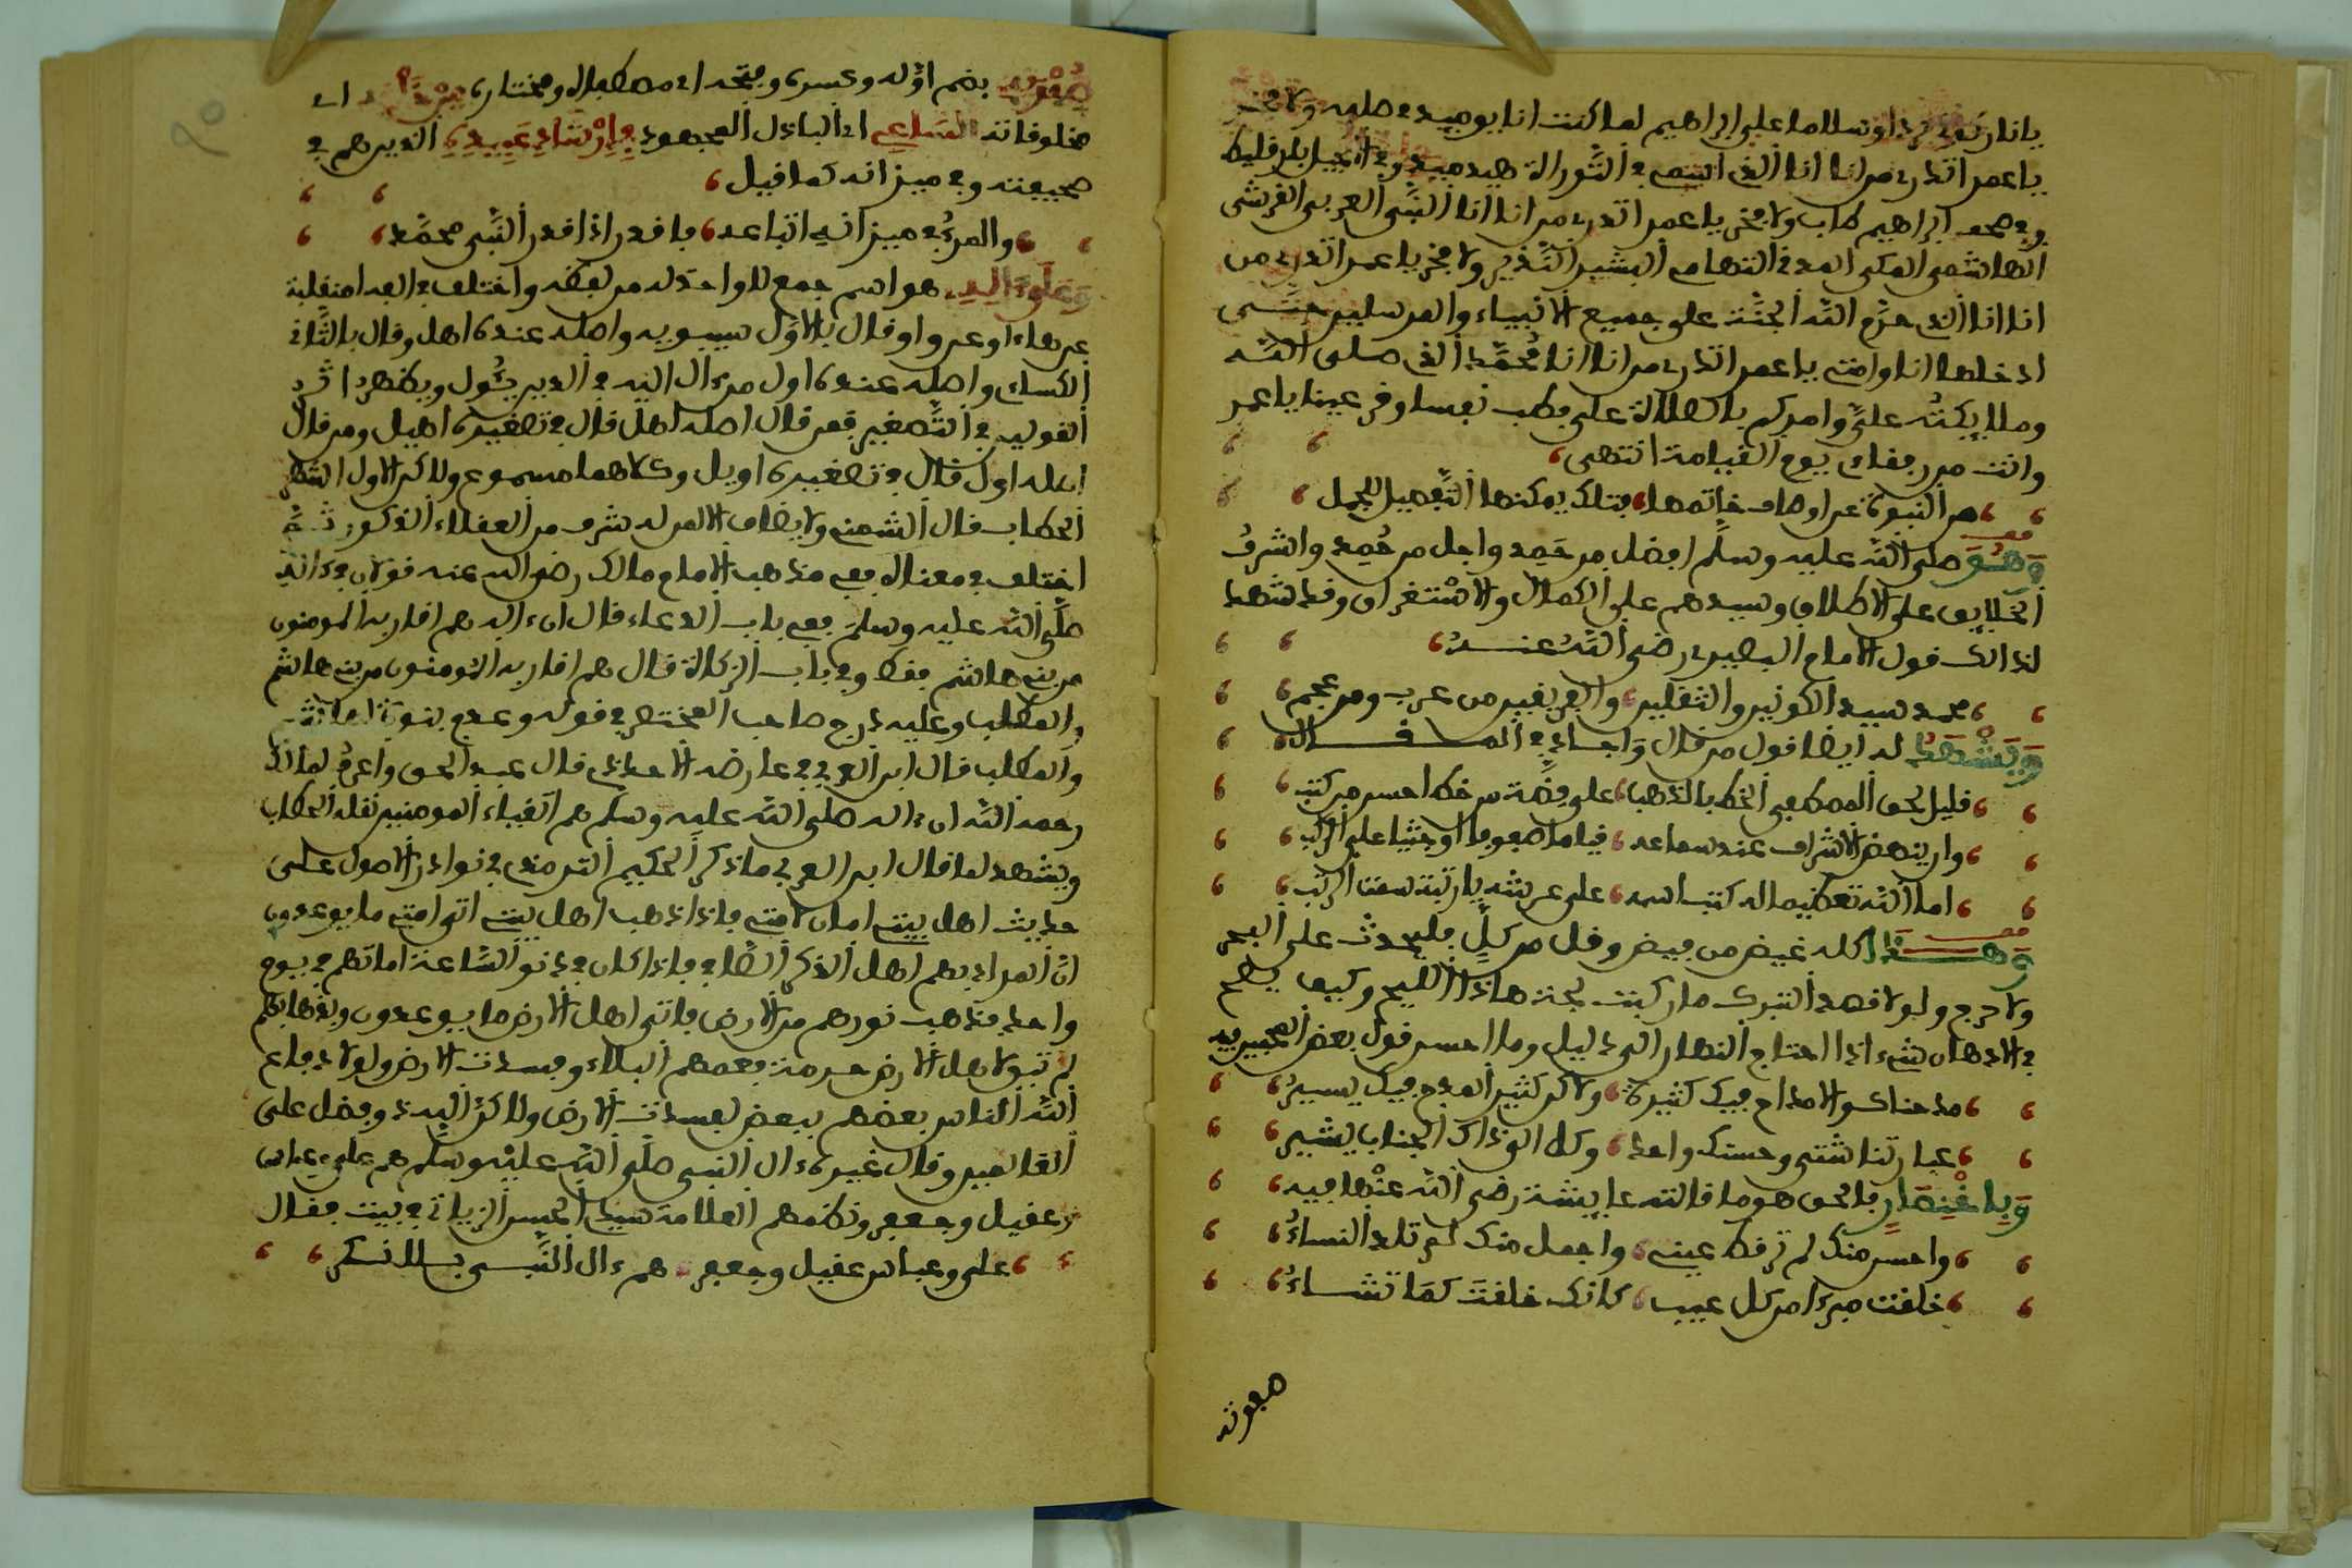 يانار كوني بردا وسلاما على ابراهيم لما كنت انا يوميد في صلبه ولا فخر
يا عمر اتدري من انا انا الذي اسمي في التوراة هيد ميد وفي الانجيل بارقليط
وفي صحف ابراهيم طاب ولا فخر يا عمر اتدري من انا انا النبي العربي القرشي
الهاشمي المكي المدني التهامي البشير النذير ولا فخر يا عمر اتدري من
انا انا الذي حرم الله الجنة على جميع الانبياء والمرسلين حتى
ادخلها انا وامتي يا عمر اتدري من انا انا محمد الذي صلى الله
وملايكته علي وامركم بالصلاة علي فطب نفسا وقر عينا يا عمر
وانت من رفقاي يوم القيامة انتهى
من النبوة عن اوصاف خاتمها فتلك يمكنها التفصيل للجمل
وهو صلى الله عليه وسلم افضل من حمد واجل من حمد واشرف
الخلايق على الاطلاق وسيدهم على الكمال والاستغراق وقد شهد
لذالك قول الامام البصيري رضي الله عنه
محمد سيد الكونين والثقلين والفريقين من عرب ومن عجم
ويشهد له ايضا قول من قال واجاد في المقال
قليل لحق المصطفى الخط بالذهب على فضة من خط احسن من كتب
وان ينهض الاشراف عند سماعه قياما صفوفا او جثيا على الركب
اما الله تعظيما له كتب اسمه على عرشه يا رتبة سمت الرتب
وهذا كله غيض من فيض وقل من كل فليحدث على البحر
ولا حرج ولولا قصد التبرك ما ركبت لجة هاذا اليم وكيف يصح
في الاذهان شيء اذا احتاج النهار الى دليل وما احسن قول بعض المحبين فيه
مدحناك والامداح فيك كثيرة ولاكن كثير المدح فيك يسير
عبارتنا شتى وحسنك واحد وكل الى ذاك الجناب يشير
وباختصار فالحق هو ما قالته عايشة رضي الله عنها فيه
واحسن منك لم ترقط عيني واجمل منك لم تلد النساء
خلقت مبرءا من كل عيب كانك خلقت كما تشاء
صفوته
صفوته بضم اوله وكسره وفتحه اي مصطفاه ومختاره من اي
مخلوقاته الساعي اي الباذل المجهود في ارشاد عبيده الذين هم في
صحيفته وفي ميزانه كما قيل
والمرء في ميزانه اتباعه فاقدر اذا قدر النبي محمد
وعلى اله هو اسم جمع لا واحد له من لفظه واختلف في الفه امنقلبة
عن هاء او عن واو قال بالاول سيبويه واصله عنده اهل وقال بالثاني
الكساءي واصله عنده اول من ءال اليه في الدين يئول ويظهر اثر
القولين في التصغير فمن قال اصله اهل قال في تصغيره اهيل ومن قال
اصله اول قال في تصغيره اويل وكلاهما مسموع ولاكن الاول اشهر
الحطاب قال الشمني ولا يضاف الا لمن له شرف من العقلاء الذكور ثم
اختلف في معناه ففي مذهب الامام مالك رضي الله عنه قولان في ءاله
صلى الله عليه وسلم ففي باب الدعاء قال ان ءاله هم اقاربه المومنون
من بني هاشم فقط وفي باب الزكاة قال هم اقاربه المومنون من بني هاشم
والمطلب وعليه درج صاحب المختصر في قوله وعدم بنوة لهاشم
والمطلب قال ابن العربي في عارضة الاحوذي قال عبد الحق واعرف لمالك
رحمه الله ان ءاله صلى الله عليه وسلم هم اتقياء المومنين نقله الحطاب
ويشهد لما قال ابن العربي ما ذكر الحكيم الترمذي في نوادر الاصول على
حديث اهل بيتي امان لامتي فاذا ذهب اهل بيتي اتى امتي ما يوعدون
ان المراد بهم اهل الذكر الصافي فاذا كان في دنو الساعة اماتهم في يوم
واحد فيذهب نورهم من الارض فاتى اهل الارض ما يوعدون وبذهابهم
لم تبق لاهل الارض حرمة فعمهم البلاء وفسدت الارض ولولا دفاع
الله الناس بعضهم ببعض لفسدت الارض ولاكن الله ذو فضل على
العالمين وقال غيره ءال النبي صلى الله عليه وسلم هم علي وعباس
وعقيل وجعفر ونظمهم العلامة سيدي الحسن الزياتي في بيت فقال
علي وعباس عقيل وجعفر هم ءال النبي بلا نكر